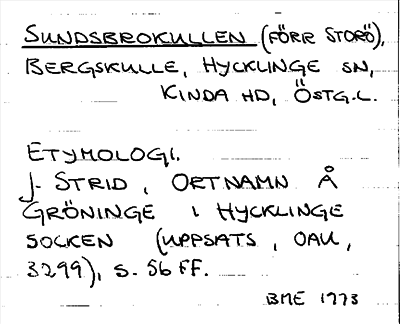 SUNDSBROKULLEN (FÖRR STORÖ),
BERGSKULLE, HYCKLINGE SN,
KINDA HD, ÖSTG.L.
ETYMOLOGI.
J. STRID, ORTNAMN Å
GRÖNINGE I HYCKLINGE
SOCKEN (UPPSATS, OAU,
3299), S. 56 FF.
BME 1973